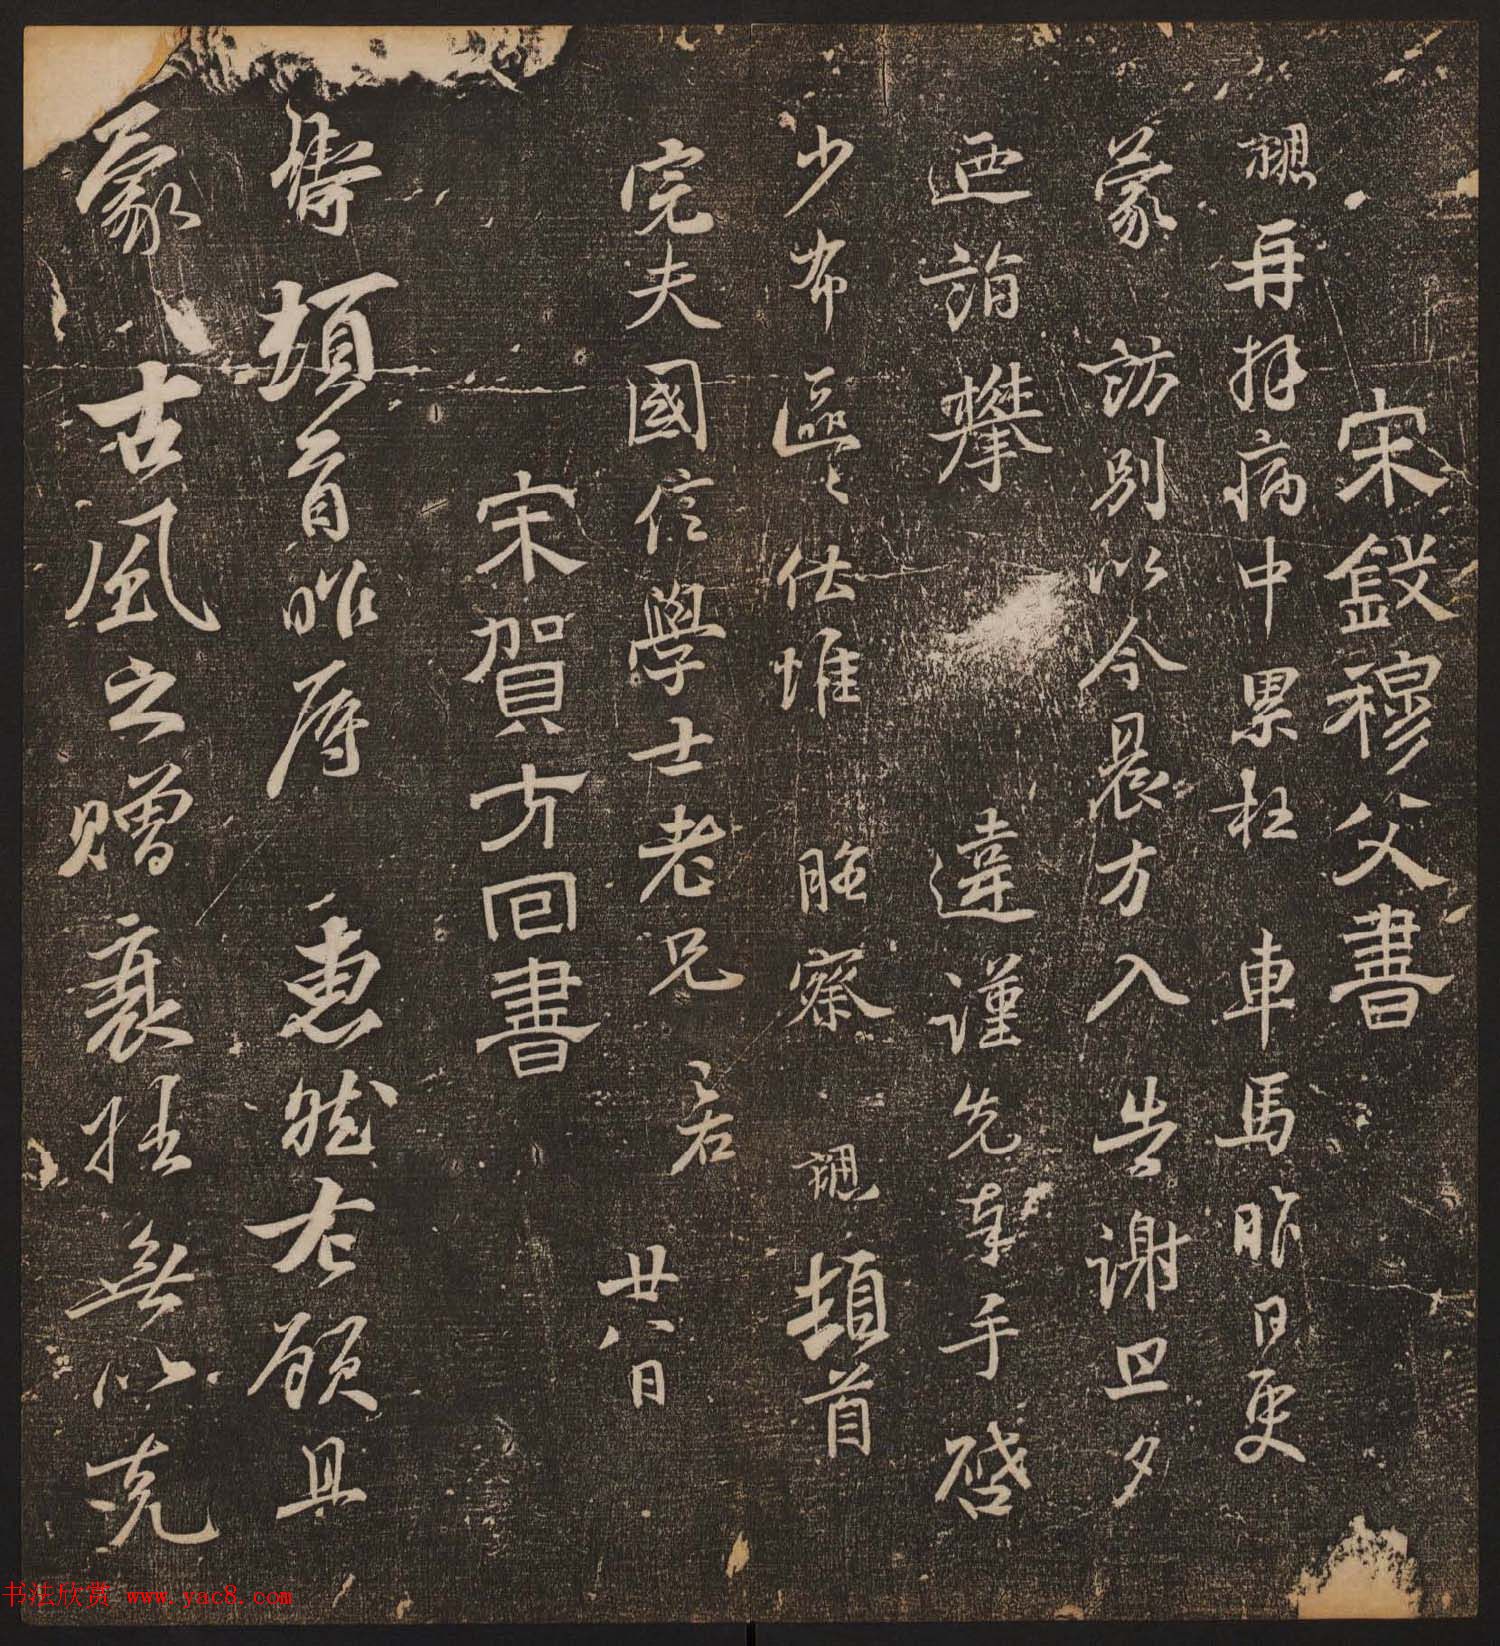 宋錢穆父書
勰再拜病中累枉　車馬昨日更
蒙　訪別以今晨方入　告謝旦夕
迺詣攀　違謹先奉手啓
少布區〻伏惟　照察　勰頓首
完夫國信學士老兄　台　廿八日
宋賀方回書
鑄頓首昨辱　惠然右顧且
蒙　古風之贈衰拙無以克
书法欣赏 www.yac8.com